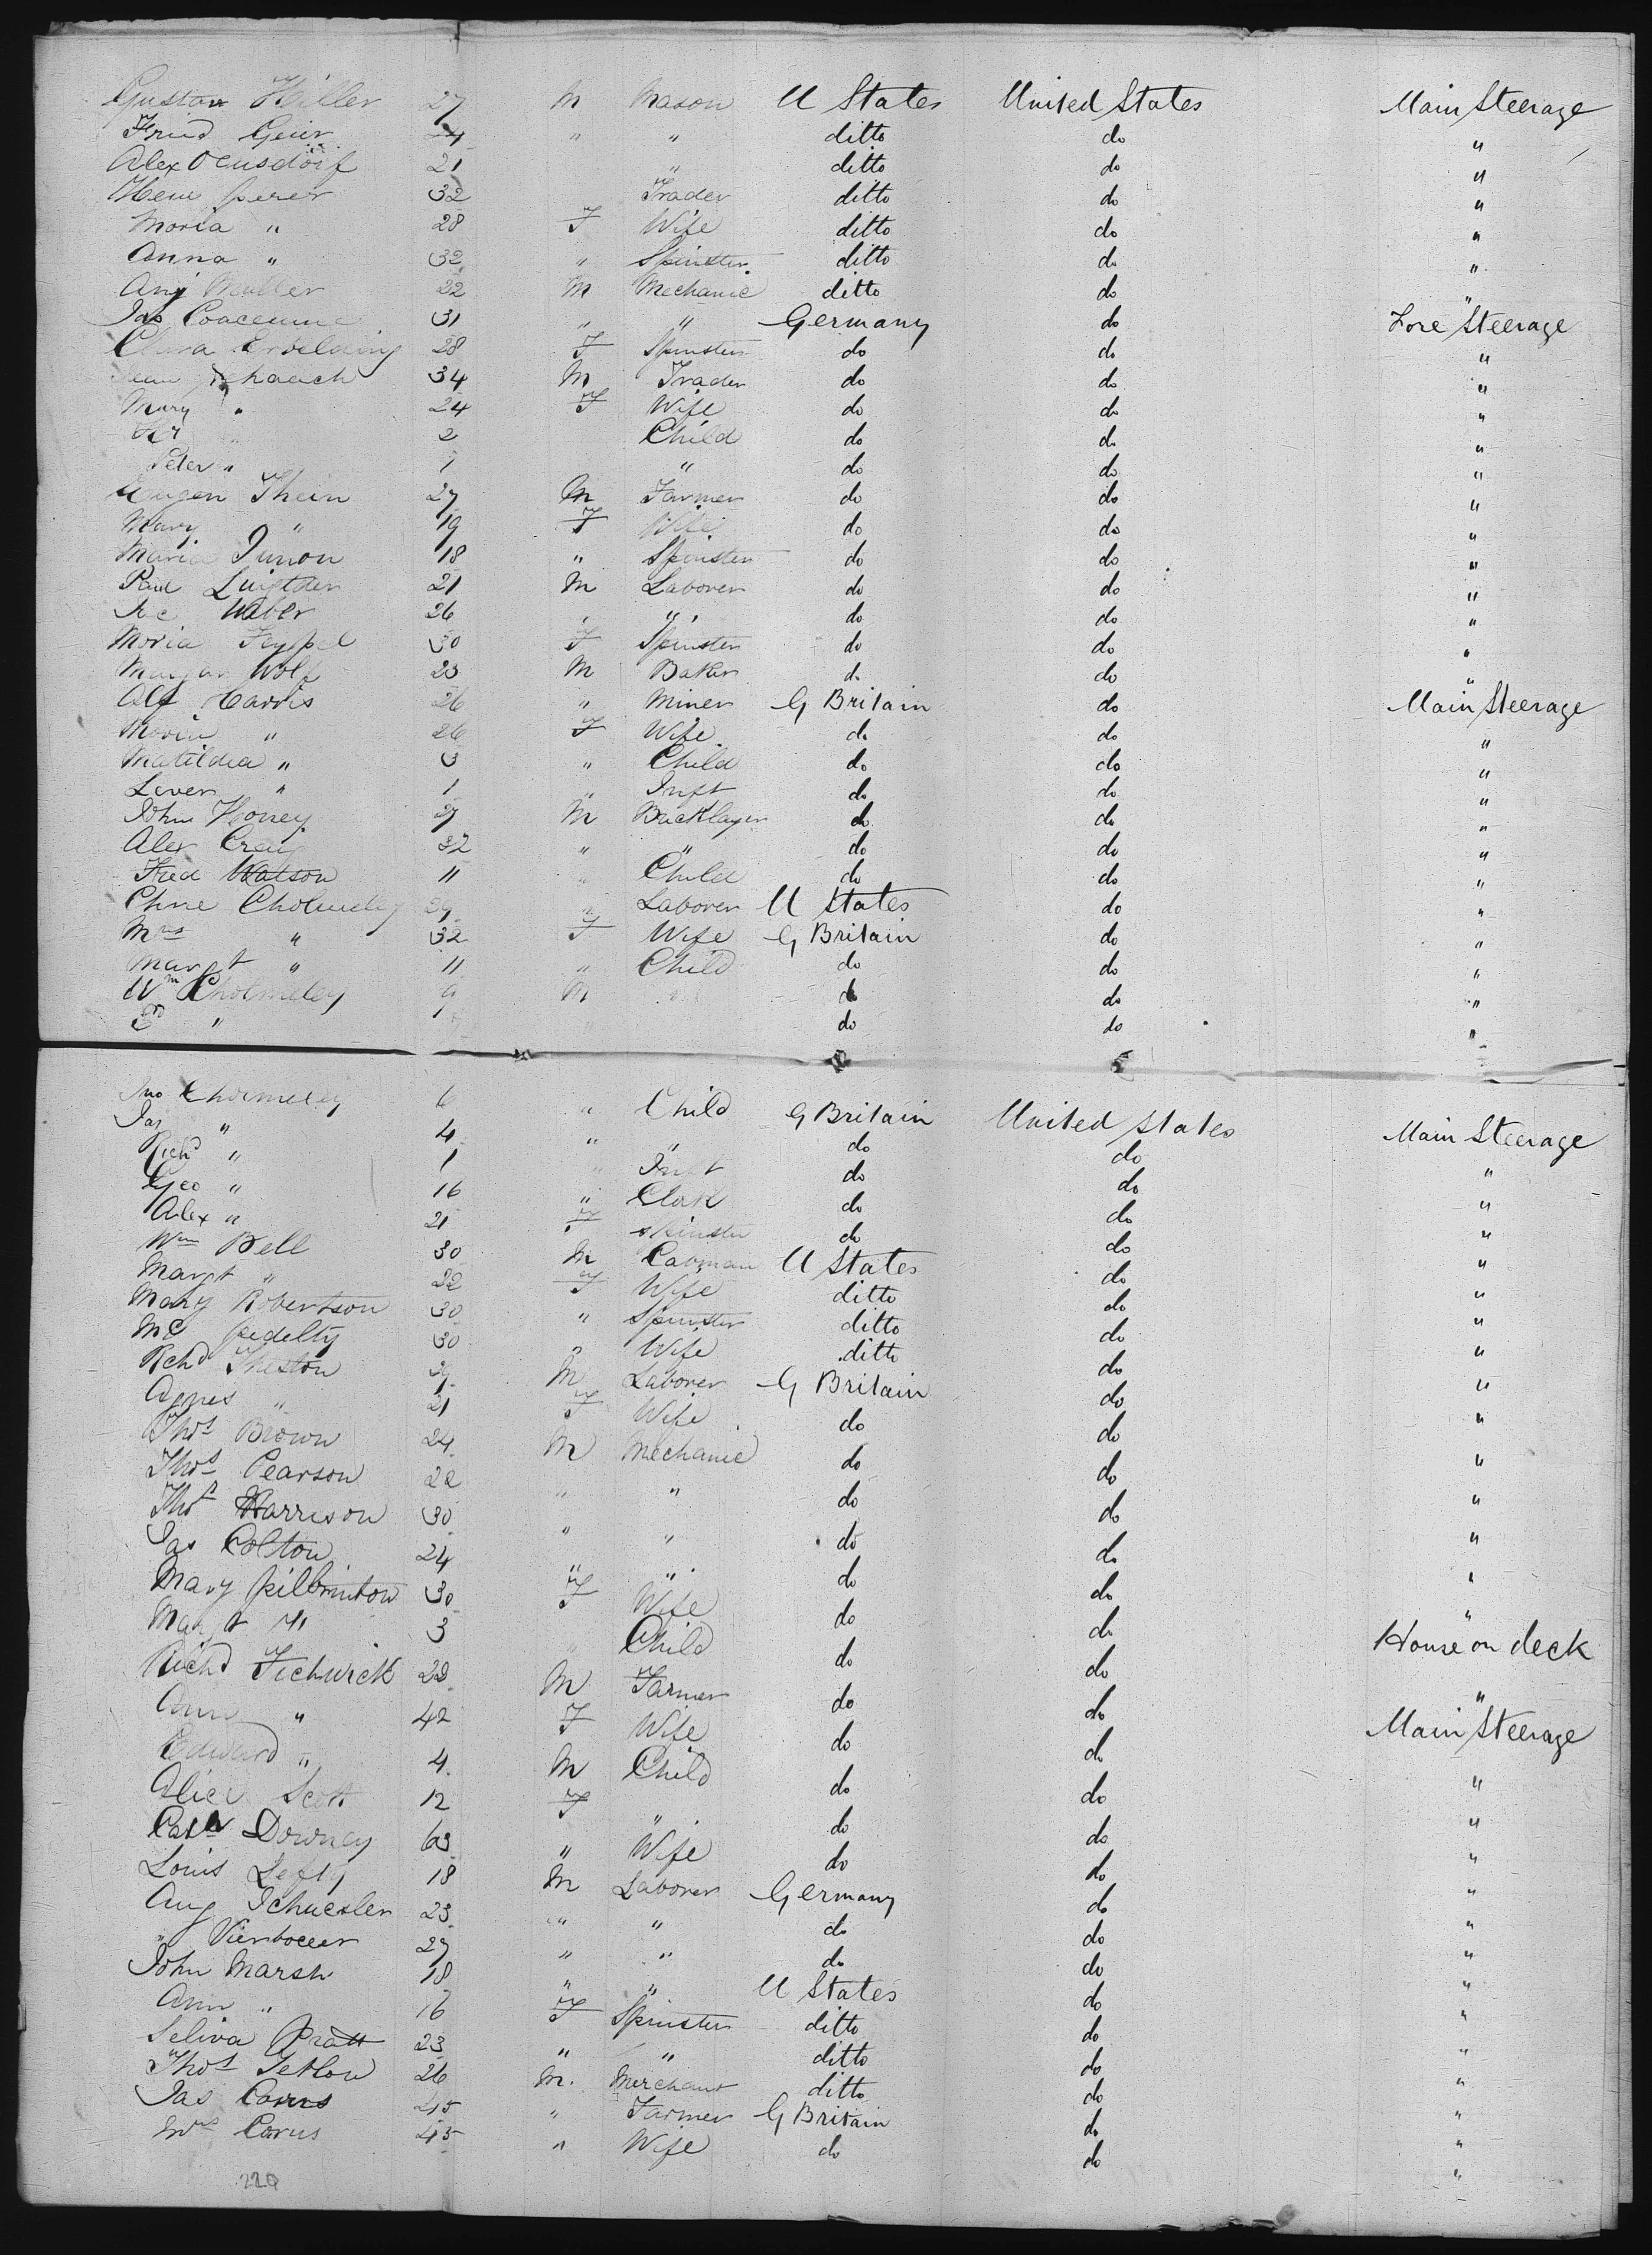 Gustav Hiller 27 M Mason U States United States Main Steerage
Geier 24 " " ditto do "
Alex 21 " ditto do "
32 Trader ditto do "
Moria " 28 F Wife ditto do "
Anna " 32 " Spinster ditto do "
Muller 22 M Mechanic ditto do "
Jas 31 " " Germany do Fore Steerage
Clara 28 F Spinster do do "
Schaach 34 M Trader do do "
Mary " 24 F Wife do do "
2 Child do do "
Peter " 1 " do do "
Thein 27 M Farmer do do "
Mary " 19 F Wife do do "
Maria Junon 18 " Spinster do do "
Paul 21 M Laborer do do "
Waber 26 " " do do "
Moria Feypel 30 F Spinster do do "
Wolf 23 M Baker do do "
Alf Harris 26 " Miner G Britain do Main Steerage
Moria " 26 F Wife do do "
Matildia " 3 " Child do do "
Lever " 1 " Inft do do "
John Honey 27 M Bricklayer do do "
Alex Craig 32 " " do do "
Fred Watson 11 " Child do do "
Chne Cholmeley 29 " Laborer U States do "
Mrs " 32 F Wife G Britain do "
Margt " 11 " Child do do "
Wm Cholmeley 9 M " do do "
Ed " do do "
Jno Cholmeley 6 " Child G Britain United States Main Steerage
Jas " 4 " " do do "
Richd " 1 " Inft do do "
Geo " 16 " Clark do do "
Alex " 21 F Spinster do do "
Wm Bell 30 M Carman U States do "
Margt " 22 F Wife ditto do "
Mary Robertson 30 " Spinster ditto do "
Mc 30 " Wife ditto do "
Richd Theston 29 M Laborer G Britain do "
Agnes " 21 F Wife do do "
Thos Brown 24 M Mechanic do do "
Thos Pearson 22 " " do do "
Thos Harrison 30 " " do do "
Jas Colton 24 " " do do "
Mary Gilbrinton 30 F Wife do do House on deck
Margt " 3 " Child do do "
Richd Fichwick 28 M Farmer do do Main Steerage
Ann " 42 F Wife do do "
Edward " 4 M Child do do "
Alice Scott 12 F " do do "
Cath Downey 63 " Wife do do "
Louis Lefty 18 M Laborer Germany do "
Aug Schuesler 23 " " do do "
" 27 " " do do "
John Marsh 18 " " U States do "
Ann " 16 F Spinster ditto do "
Seliva Pratt 23 " " ditto do "
Thos Tetlow 26 M. Merchant ditto do "
Jas Corus 45 " Farmer G Britain do "
Mrs Corus 45 " Wife do do "
220